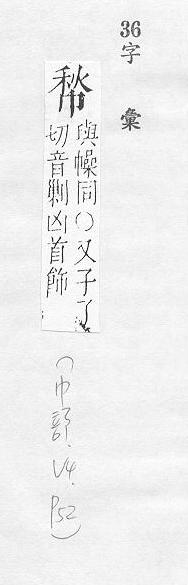 36字　彙
與幧同○又子了
切音剿凶首飾
(巾部. V4. P52)